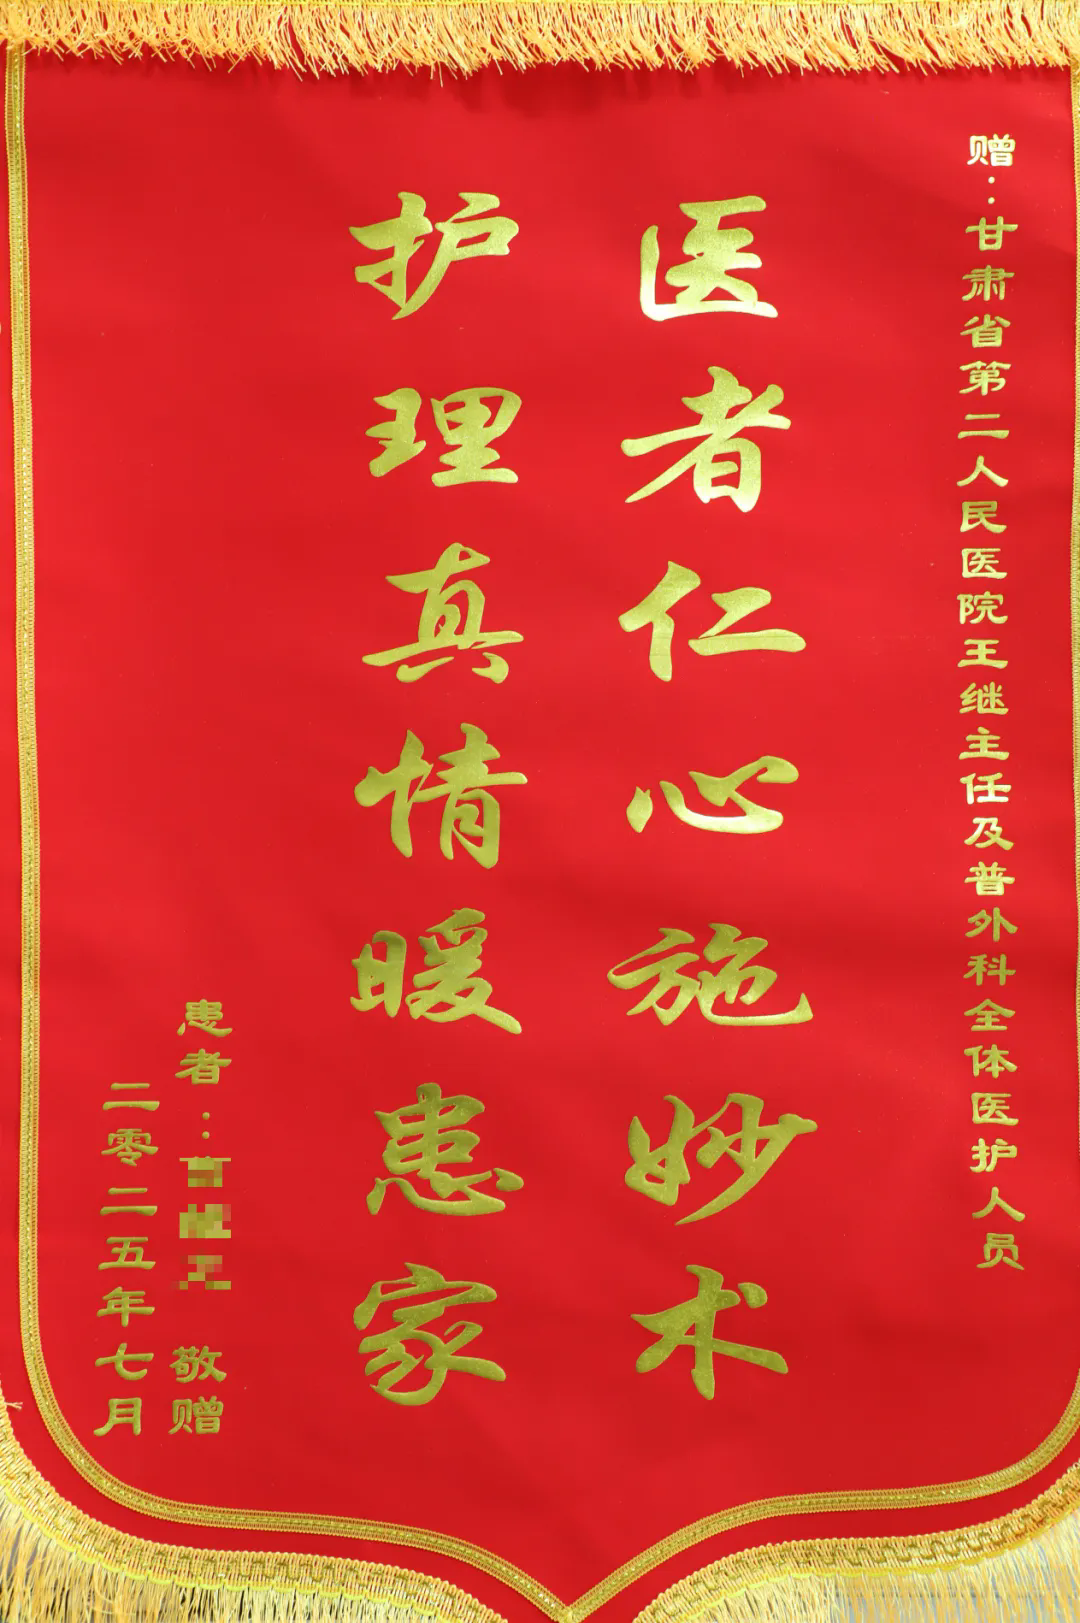 赠：甘肃省第二人民医院王继主任及普外科全体医护人员
医者仁心施妙术
护理真情暖患家
患者： 敬赠
二零二五年七月